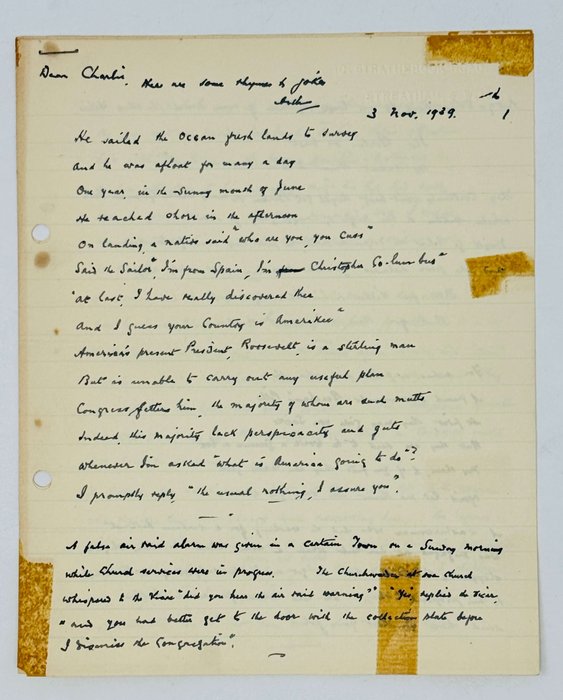 Dear Charlie. Here are some rhymes & jokes
3 Nov. 1939.
He sailed the Ocean fresh lands to survey
And he was afloat for many a day
One year, in the sunny month of June
He reached shore in the afternoon
On landing, a native said "who are you, you Cuss"
Said the Sailor, "I'm from Spain, I'm Christopher Co-lum-bus"
"At last, I have really discovered thee
And I guess your Country is Amerikee"
America's present President, Roosevelt, is a sterling man
But is unable to carry out any useful plan
Congress fetters him, the majority of whom are such mutts
Indeed, this majority lack perspicacity and guts
Whenever I'm asked "what is America going to do"?
I promptly reply, "the usual nothing, I assure you".
A false air raid alarm was given in a certain Town on a Sunday morning
while Church services were in progress. The Churchwarden at one Church
whispered to the Vicar "did you hear the air raid warning?" "Yes, replied the Vicar,
"and you had better get to the door with the collection plate before
I dismiss the Congregation".